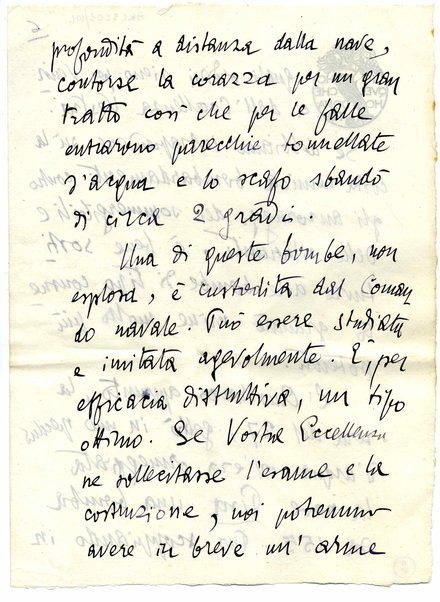 profondità a distanza dalla nave,
contorse la corazza per un gran
tratto così che per le falle
entrarono parecchie tonnellate
d'acqua e lo scafo sbandò
di circa 2 gradi.
Una di queste bombe, non
esplosa, è custodita dal Coman
do navale. Può essere studiata
e imitata agevolmente. È, per
efficacia distruttiva, un tipo
ottimo. Se Vostra Eccellenza
ne sollecitasse l'esame e la
costruzione, noi potremmo
avere in breve un'arme